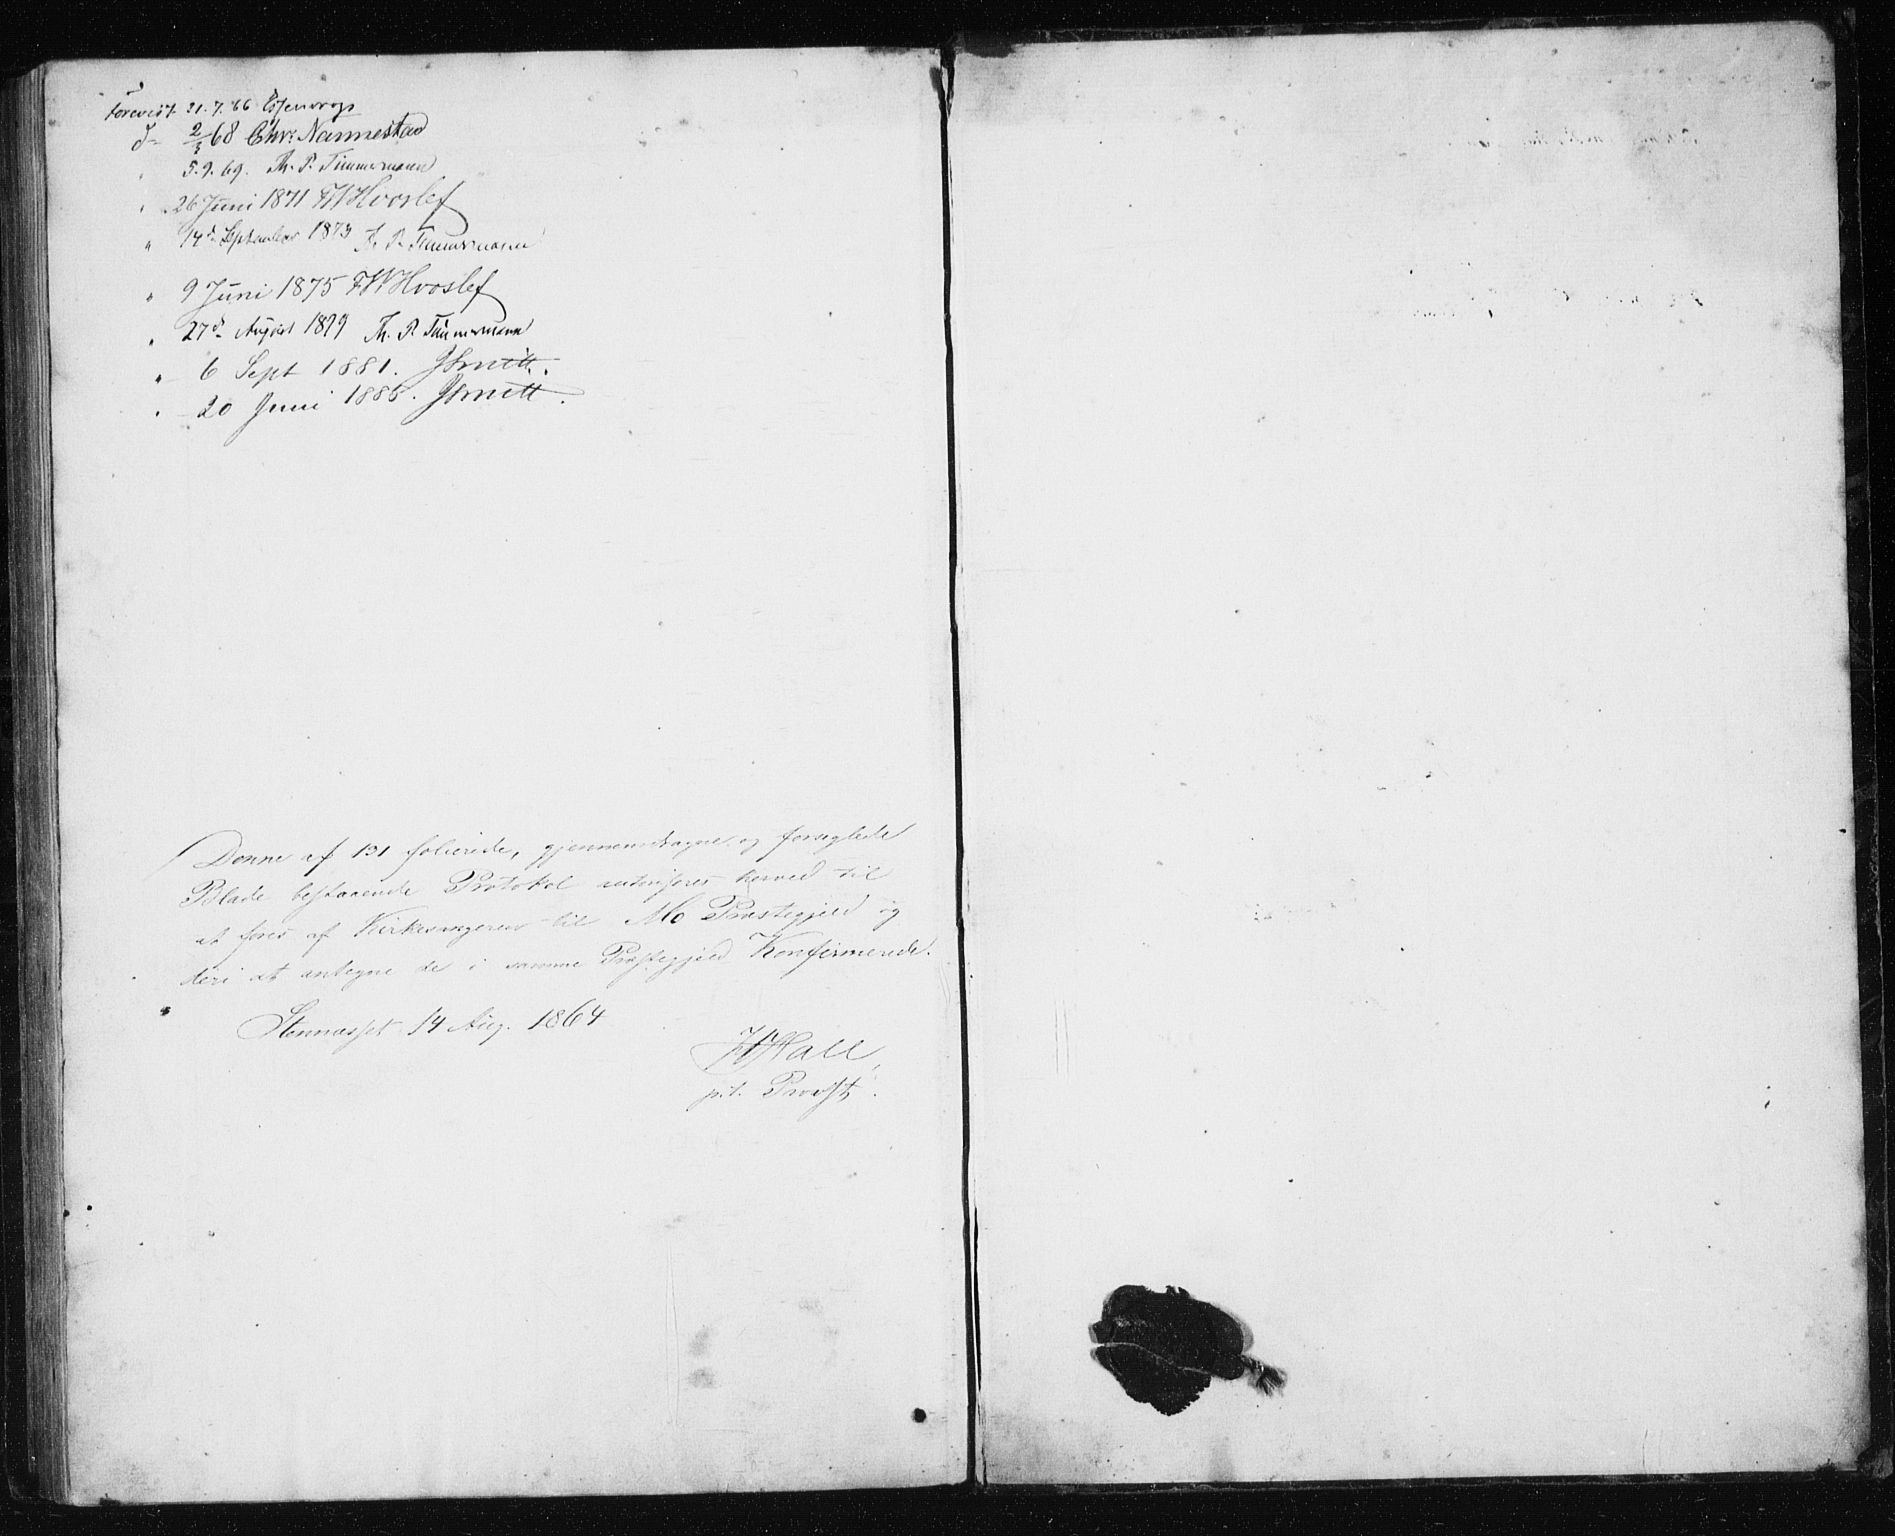 Forevist 21.7.66
d— 2/8 68 Chr. Nannestad
" 5.9.69. Th. P. Timmermann
" 26 Juni 1871 FWHvoslef
" 14de September 1873 Th. P. Timmermann
" 9 Juni 1875 FWHvoslef
" 27de August 1879 Th. P. Timmermann
" 6 Sept 1881. JSmitt.
" 20 Juni 1885. JSmitt.
Denne af 131 folierede, gjennemdragne og forseglede
Blade bestaaende Protokol autoriseres herved til
at føres af Kirkesangeren til Mo Præstegjeld og
deri at antegne de i samme Præstegjeld Konfirmerede.
Stennæsset 14 Aug. 1864
Hall
p.t. Provst.